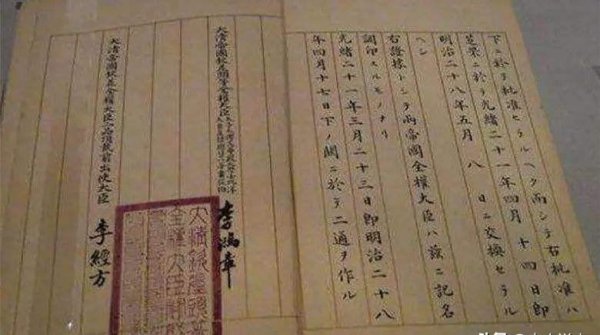 下ニ於テ批准セラルヘク而シテ右批准ハ
芝罘ニ於テ光緒二十一年四月十四日即
明治二十八年五月八日ニ交換セラル
ヘシ
右證據トシテ兩帝國全權大臣ハ茲ニ記名
調印スルモノナリ
光緒二十一年三月二十三日即明治二十八
年四月十七日下ノ關ニ於テ二通ヲ作ル
大清帝國欽差頭等全權大臣 李鴻章
大清帝國欽差全權大臣二品頂戴前出使大臣 李經方